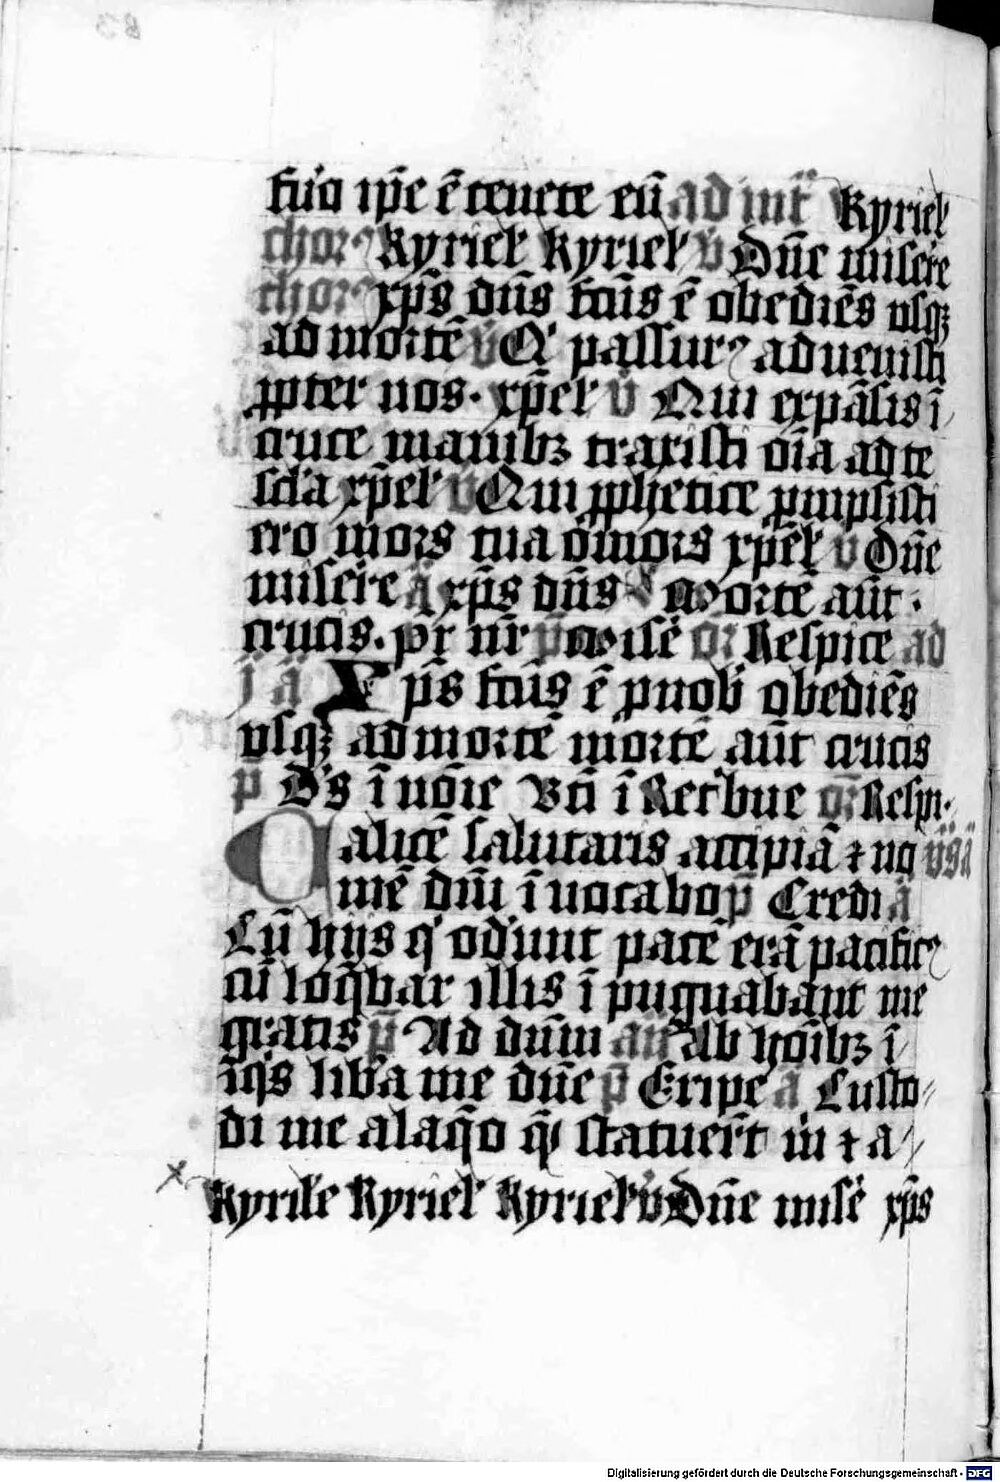 fuĩo ip̃e ẽ tenete eũ ad int̃ Kyriel̃
chor⁹ Kyriel̃ kyriel̃ v̄ Dñe misere
chor⁹ xp̃s dñs fcũs ẽ obediẽs usqꝫ
ad mortẽ v̄ Q' passur⁹ advenisti
ꝓpter nos. xp̃el̃ v̄ Qui expãsis ĩ
cruce manibꝫ traxisti oĩa ad te
scl̃a xp̃el̃ v̄ Qui ꝓphetice ꝓmpsisti
ero mors tua o mors xp̃el̃ v̄ Dñe
misere ã xp̃s dñs v̄ Mortẽ aũt.
crucis. pr̃ nr̃ p̃ Misẽ or̃ Respice ad
ã Xp̃s fcũs ẽ p nob̃ obediẽs
usqꝫ ad mortẽ mortẽ aũt crucis
p̄ D's ĩ noĩe Bti ĩ Retˀbue or̃ Respi.
Calicẽ salutaris accipiã ⁊ no
mẽ dñi ĩvocabo p̃ Credi ã
Cũ hijs q' oderunt pacẽ erã pacific⁹
cũ loq̃bar illis ĩpugnabant me
gratis p̃ Ad dñm an̄ Ab hoĩbꝫ ĩ
iq̃s lib̃a me dñe p̃ Eripe ã Custo-
di me a laq̃o q̃ statuer̃t m̃ ⁊ a
Kyrile Kyriel̃ Kyriel̃ v̄ Dñe misẽ xp̃s
Digitalisierung gefördert durch die Deutsche Forschungsgemeinschaft - DFG